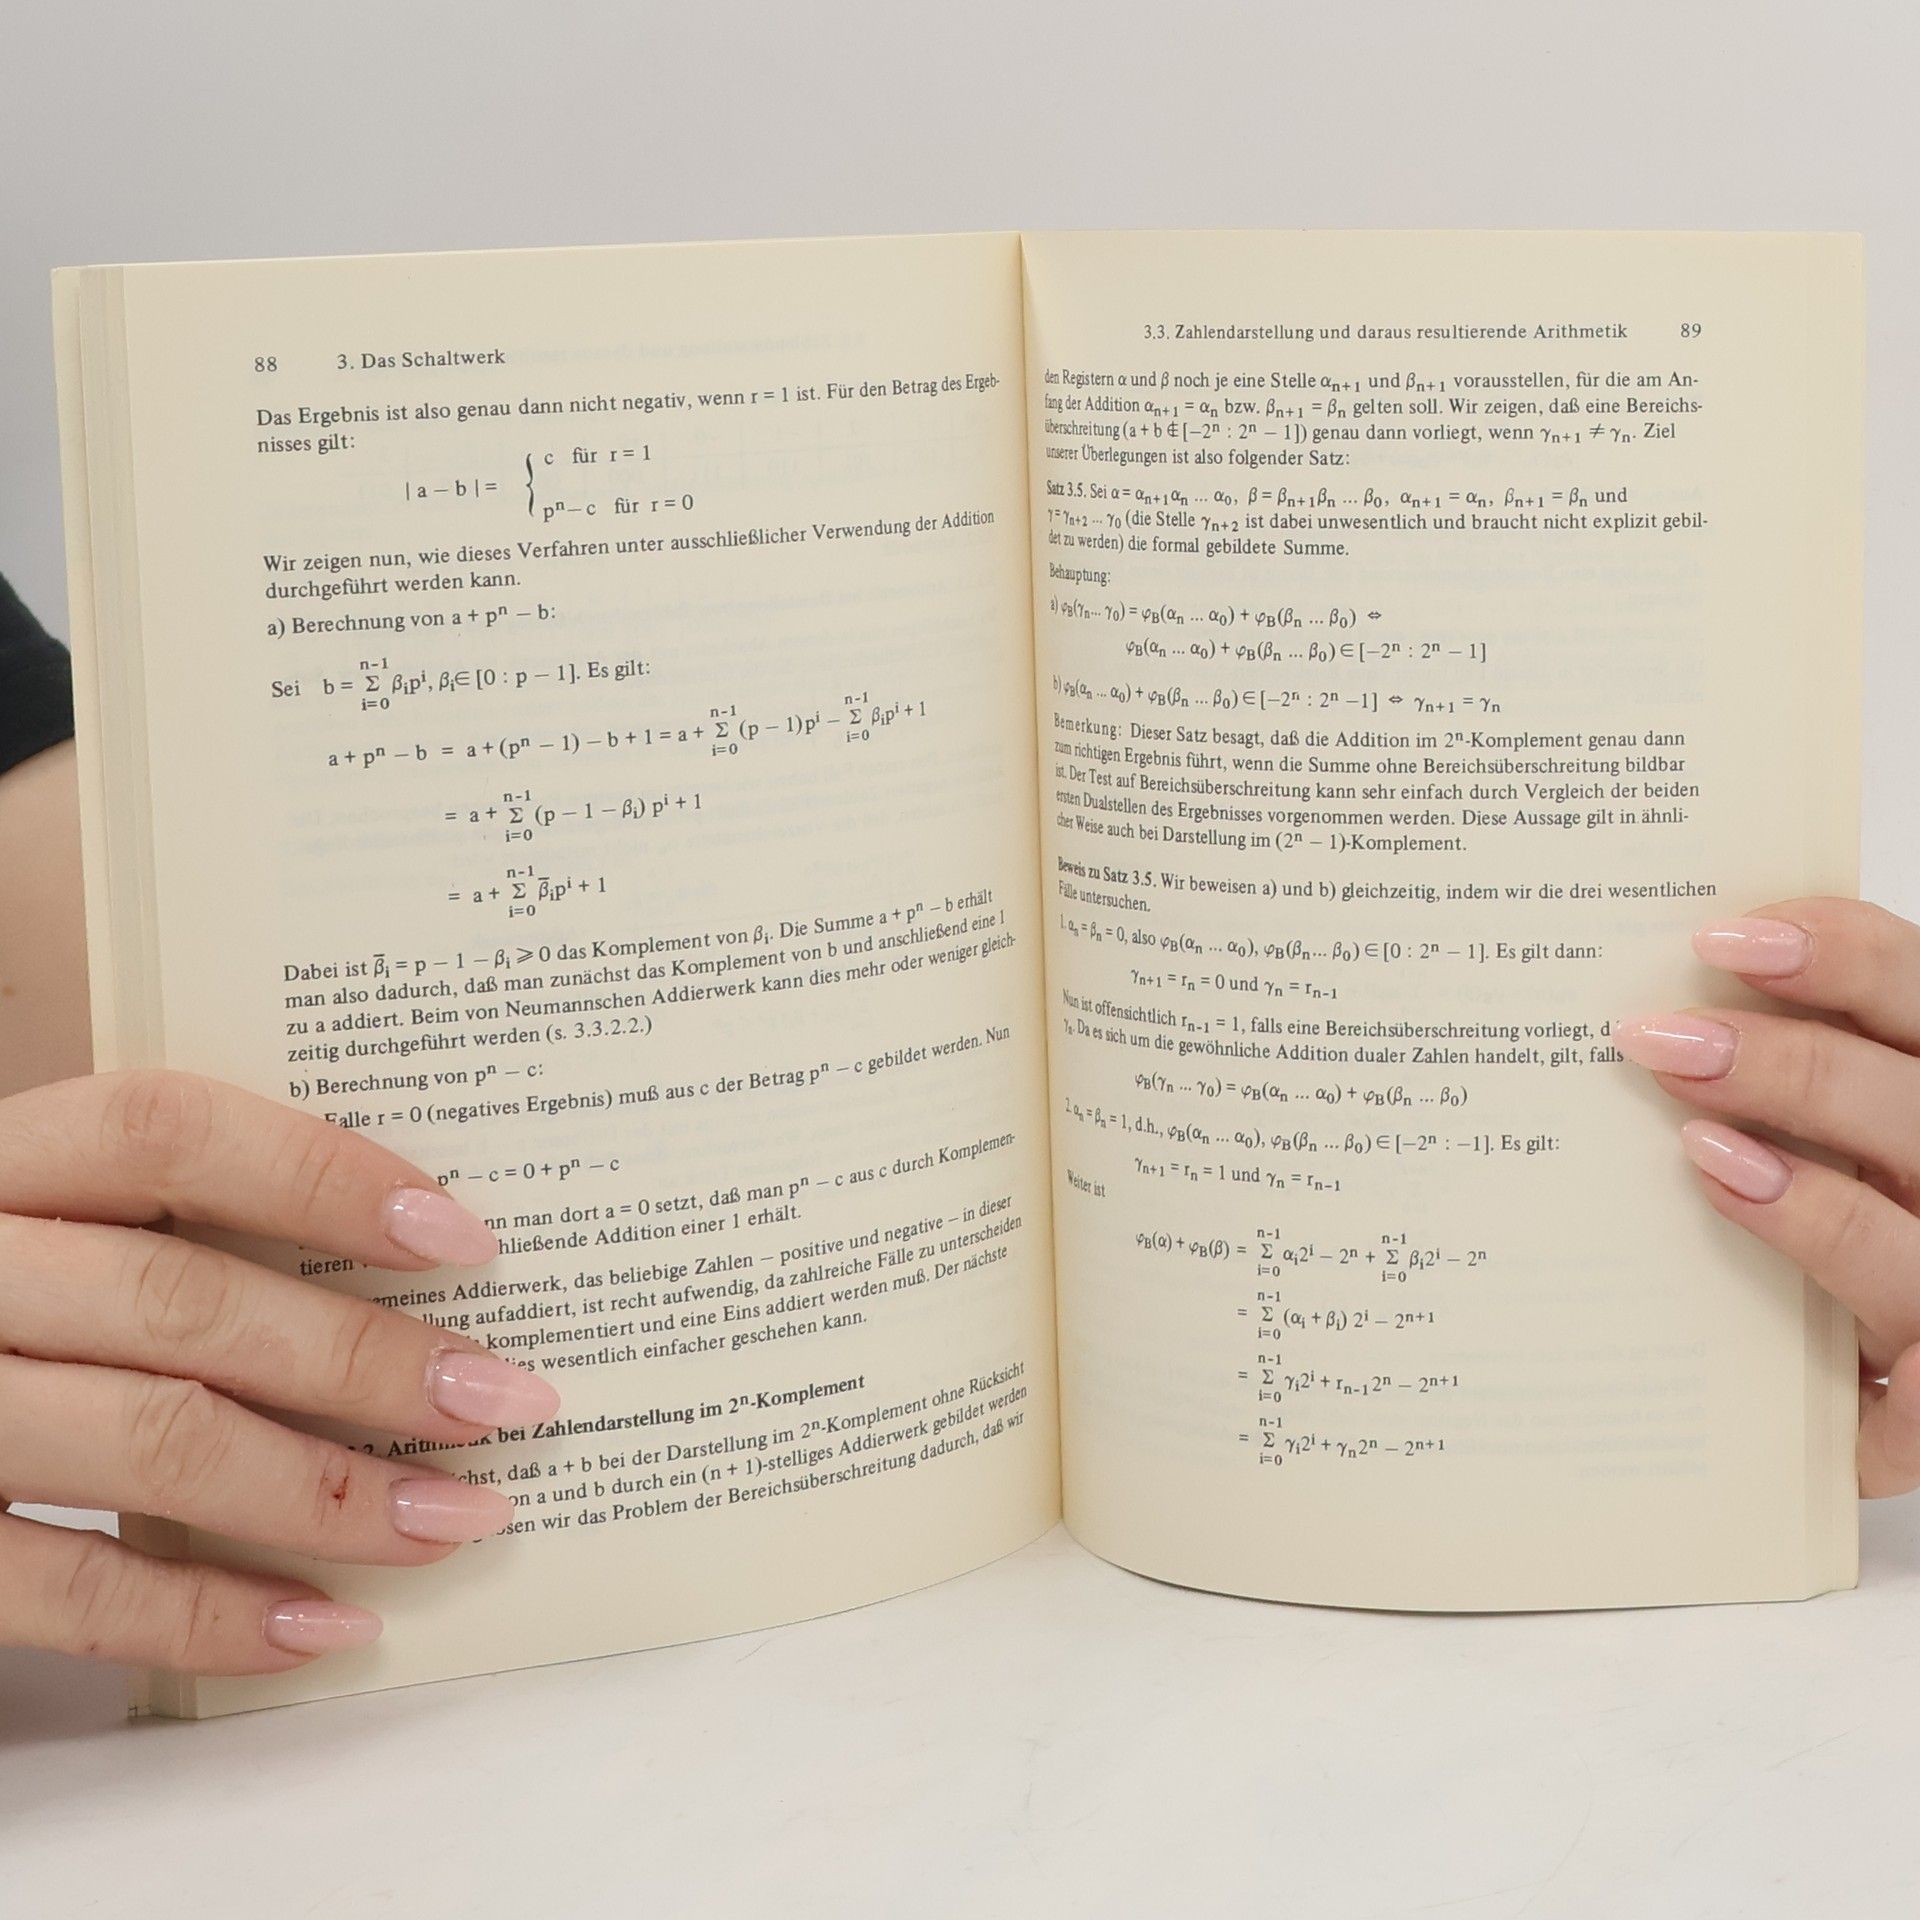 88 3. Das Schaltwerk
Das Ergebnis ist also genau dann nicht negativ, wenn r = 1 ist. Für den Betrag des Ergeb-
nisses gilt:
c für r = 1
| a – b | =
pⁿ – c für r = 0
Wir zeigen nun, wie dieses Verfahren unter ausschließlicher Verwendung der Addition
durchgeführt werden kann.
a) Berechnung von a + pⁿ – b:
n-1
Sei b = Σ βᵢpⁱ, βᵢ∈ [0 : p – 1]. Es gilt:
i=0
n-1 n-1
a + pⁿ – b = a + (pⁿ – 1) – b + 1 = a + Σ (p – 1)pⁱ – Σ βᵢpⁱ + 1
i=0 i=0
n-1
= a + Σ (p – 1 – βᵢ) pⁱ + 1
i=0
n-1
= a + Σ β̄ᵢpⁱ + 1
i=0
Dabei ist β̄ᵢ = p – 1 – βᵢ ⩾ 0 das Komplement von βᵢ. Die Summe a + pⁿ – b erhält
man also dadurch, daß man zunächst das Komplement von b und anschließend eine 1
zu a addiert. Beim von Neumannschen Addierwerk kann dies mehr oder weniger gleich-
zeitig durchgeführt werden (s. 3.3.2.2.)
b) Berechnung von pⁿ – c:
Falle r = 0 (negatives Ergebnis) muß aus c der Betrag pⁿ – c gebildet werden. Nun
pⁿ – c = 0 + pⁿ – c
man dort a = 0 setzt, daß man pⁿ – c aus c durch Komplemen-
tieren hließende Addition einer 1 erhält.
meines Addierwerk, das beliebige Zahlen – positive und negative – in dieser
llung aufaddiert, ist recht aufwendig, da zahlreiche Fälle zu unterscheiden
komplementiert und eine Eins addiert werden muß. Der nächste
wesentlich einfacher geschehen kann.
bei Zahlendarstellung im 2ⁿ-Komplement
chst, daß a + b bei der Darstellung im 2ⁿ-Komplement ohne Rücksicht
on a und b durch ein (n + 1)-stelliges Addierwerk gebildet werden
sen wir das Problem der Bereichsüberschreitung dadurch, daß wir
3.3. Zahlendarstellung und daraus resultierende Arithmetik 89
den Registern α und β noch je eine Stelle αₙ₊₁ und βₙ₊₁ vorausstellen, für die am An-
fang der Addition αₙ₊₁ = αₙ bzw. βₙ₊₁ = βₙ gelten soll. Wir zeigen, daß eine Bereichs-
überschreitung (a + b ∉ [–2ⁿ : 2ⁿ – 1]) genau dann vorliegt, wenn γₙ₊₁ ≠ γₙ. Ziel
unserer Überlegungen ist also folgender Satz:
Satz 3.5. Sei α = αₙ₊₁αₙ ... α₀, β = βₙ₊₁βₙ ... β₀, αₙ₊₁ = αₙ, βₙ₊₁ = βₙ und
γ = γₙ₊₂ ... γ₀ (die Stelle γₙ₊₂ ist dabei unwesentlich und braucht nicht explizit gebil-
det zu werden) die formal gebildete Summe.
Behauptung:
a) φB(γₙ ... γ₀) = φB(αₙ ... α₀) + φB(βₙ ... β₀) ⇔
φB(αₙ ... α₀) + φB(βₙ ... β₀) ∈ [–2ⁿ : 2ⁿ – 1]
b) φB(αₙ ... α₀) + φB(βₙ ... β₀) ∈ [–2ⁿ : 2ⁿ –1] ⇔ γₙ₊₁ = γₙ
Bemerkung: Dieser Satz besagt, daß die Addition im 2ⁿ-Komplement genau dann
zum richtigen Ergebnis führt, wenn die Summe ohne Bereichsüberschreitung bildbar
ist. Der Test auf Bereichsüberschreitung kann sehr einfach durch Vergleich der beiden
ersten Dualstellen des Ergebnisses vorgenommen werden. Diese Aussage gilt in ähnli-
cher Weise auch bei Darstellung im (2ⁿ – 1)-Komplement.
Beweis zu Satz 3.5. Wir beweisen a) und b) gleichzeitig, indem wir die drei wesentlichen
Fälle untersuchen.
1. αₙ = βₙ = 0, also φB(αₙ ... α₀), φB(βₙ ... β₀) ∈ [0 : 2ⁿ – 1]. Es gilt dann:
γₙ₊₁ = rₙ = 0 und γₙ = rₙ₋₁
Nun ist offensichtlich rₙ₋₁ = 1, falls eine Bereichsüberschreitung vorliegt, d
γₙ. Da es sich um die gewöhnliche Addition dualer Zahlen handelt, gilt, falls
φB(γₙ ... γ₀) = φB(αₙ ... α₀) + φB(βₙ ... β₀)
2. αₙ = βₙ = 1, d.h., φB(αₙ ... α₀), φB(βₙ ... β₀) ∈ [–2ⁿ : –1]. Es gilt:
γₙ₊₁ = rₙ = 1 und γₙ = rₙ₋₁
Weiter ist
n-1 n-1
φB(α) + φB(β) = Σ αᵢ2ⁱ – 2ⁿ + Σ βᵢ2ⁱ – 2ⁿ
i=0 i=0
n-1
= Σ (αᵢ + βᵢ) 2ⁱ – 2ⁿ⁺¹
i=0
n-1
= Σ γᵢ2ⁱ + rₙ₋₁2ⁿ – 2ⁿ⁺¹
i=0
n-1
= Σ γᵢ2ⁱ + γₙ2ⁿ – 2ⁿ⁺¹
i=0